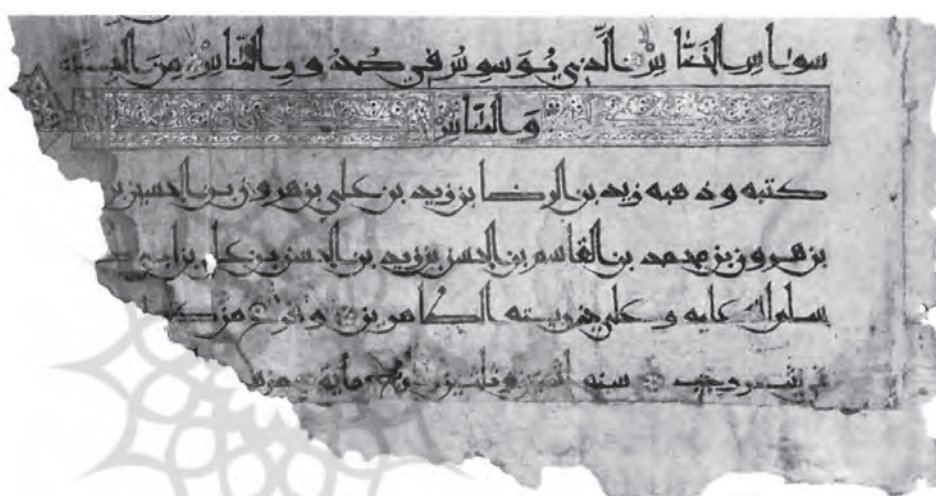 سواس الخناس الذي يوسوس في صدور الناس من الجنة
والناس
كتبه وذهبه زيد بن الرضا بن زيد بن علي بن هرون بن الحسين بن
بن هرون بن محمد بن القاسم بن الحسن بن زيد بن الحسن بن علي بن ابي
سلم الله عليه وعلى ذريته الطاهرين وفرغ من
في رجب سنه اثنين وثلثين مايه